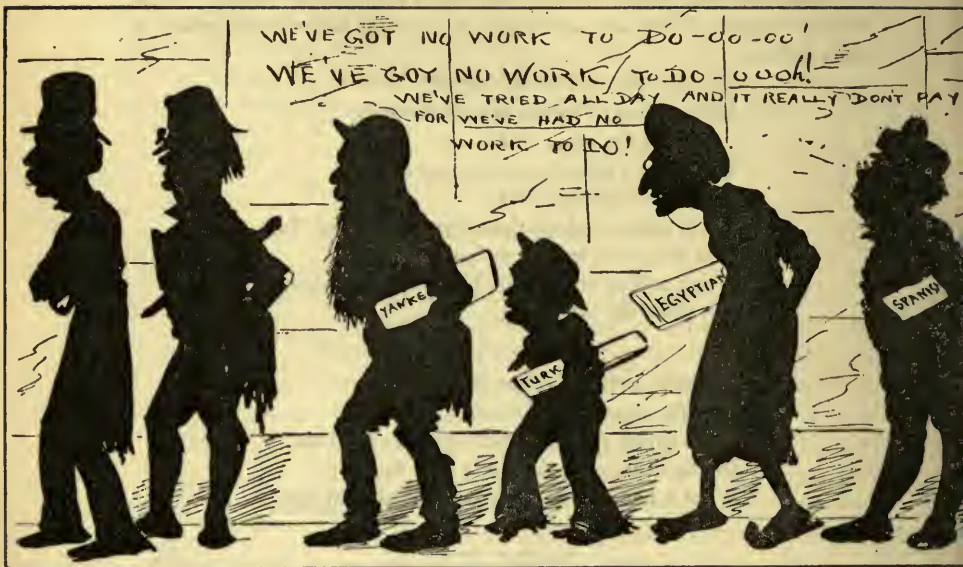 WE'VE GOT NO WORK TO DO-OO-OO!
WE'VE GOT NO WORK TO DO-OOOh!
WE'VE TRIED ALL DAY AND IT REALLY DON'T PAY
FOR WE'VE HAD NO
WORK TO DO!
YANKE
TURK
EGYPTIA
SPANIS